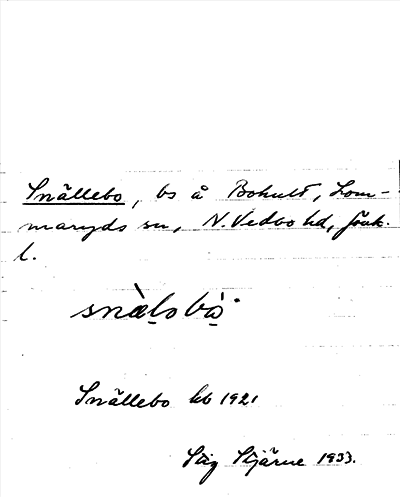 Snällebo, bs å Bohult, Lom-
maryds sn, N. Vedbo hd, Jönk.
l.
Snällebo kb 1921
Stig Stjärne 1933.